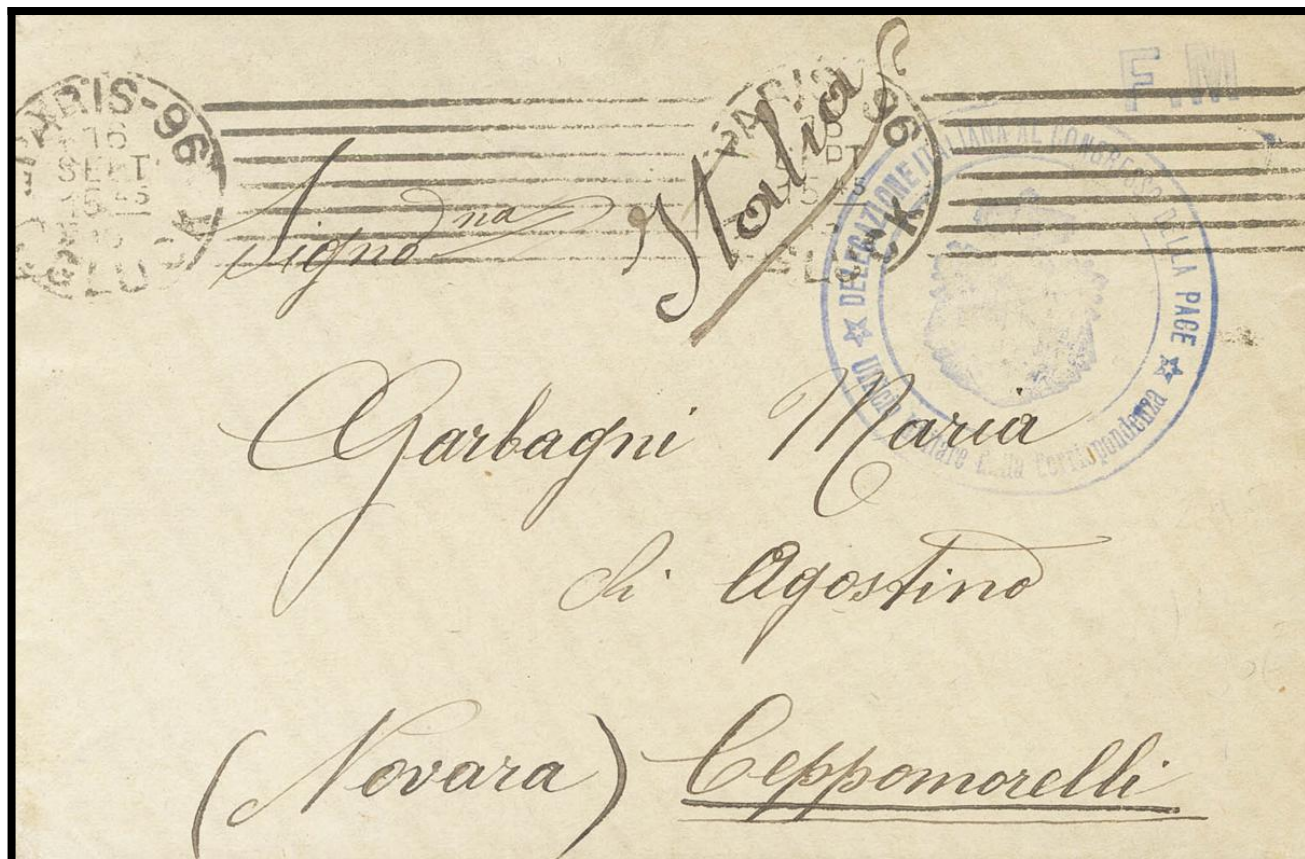 PARIS-96
SEPT
15 45
GLUCK
PARIS 96
15 45
GLUCK
Italia
F.M.
DELEGAZIONE ITALIANA AL CONGRESSO DELLA PACE
Ufficio Militare della Corrispondenza
Signorina
Garbagni Maria
di Agostino
(Novara) Ceppomorelli